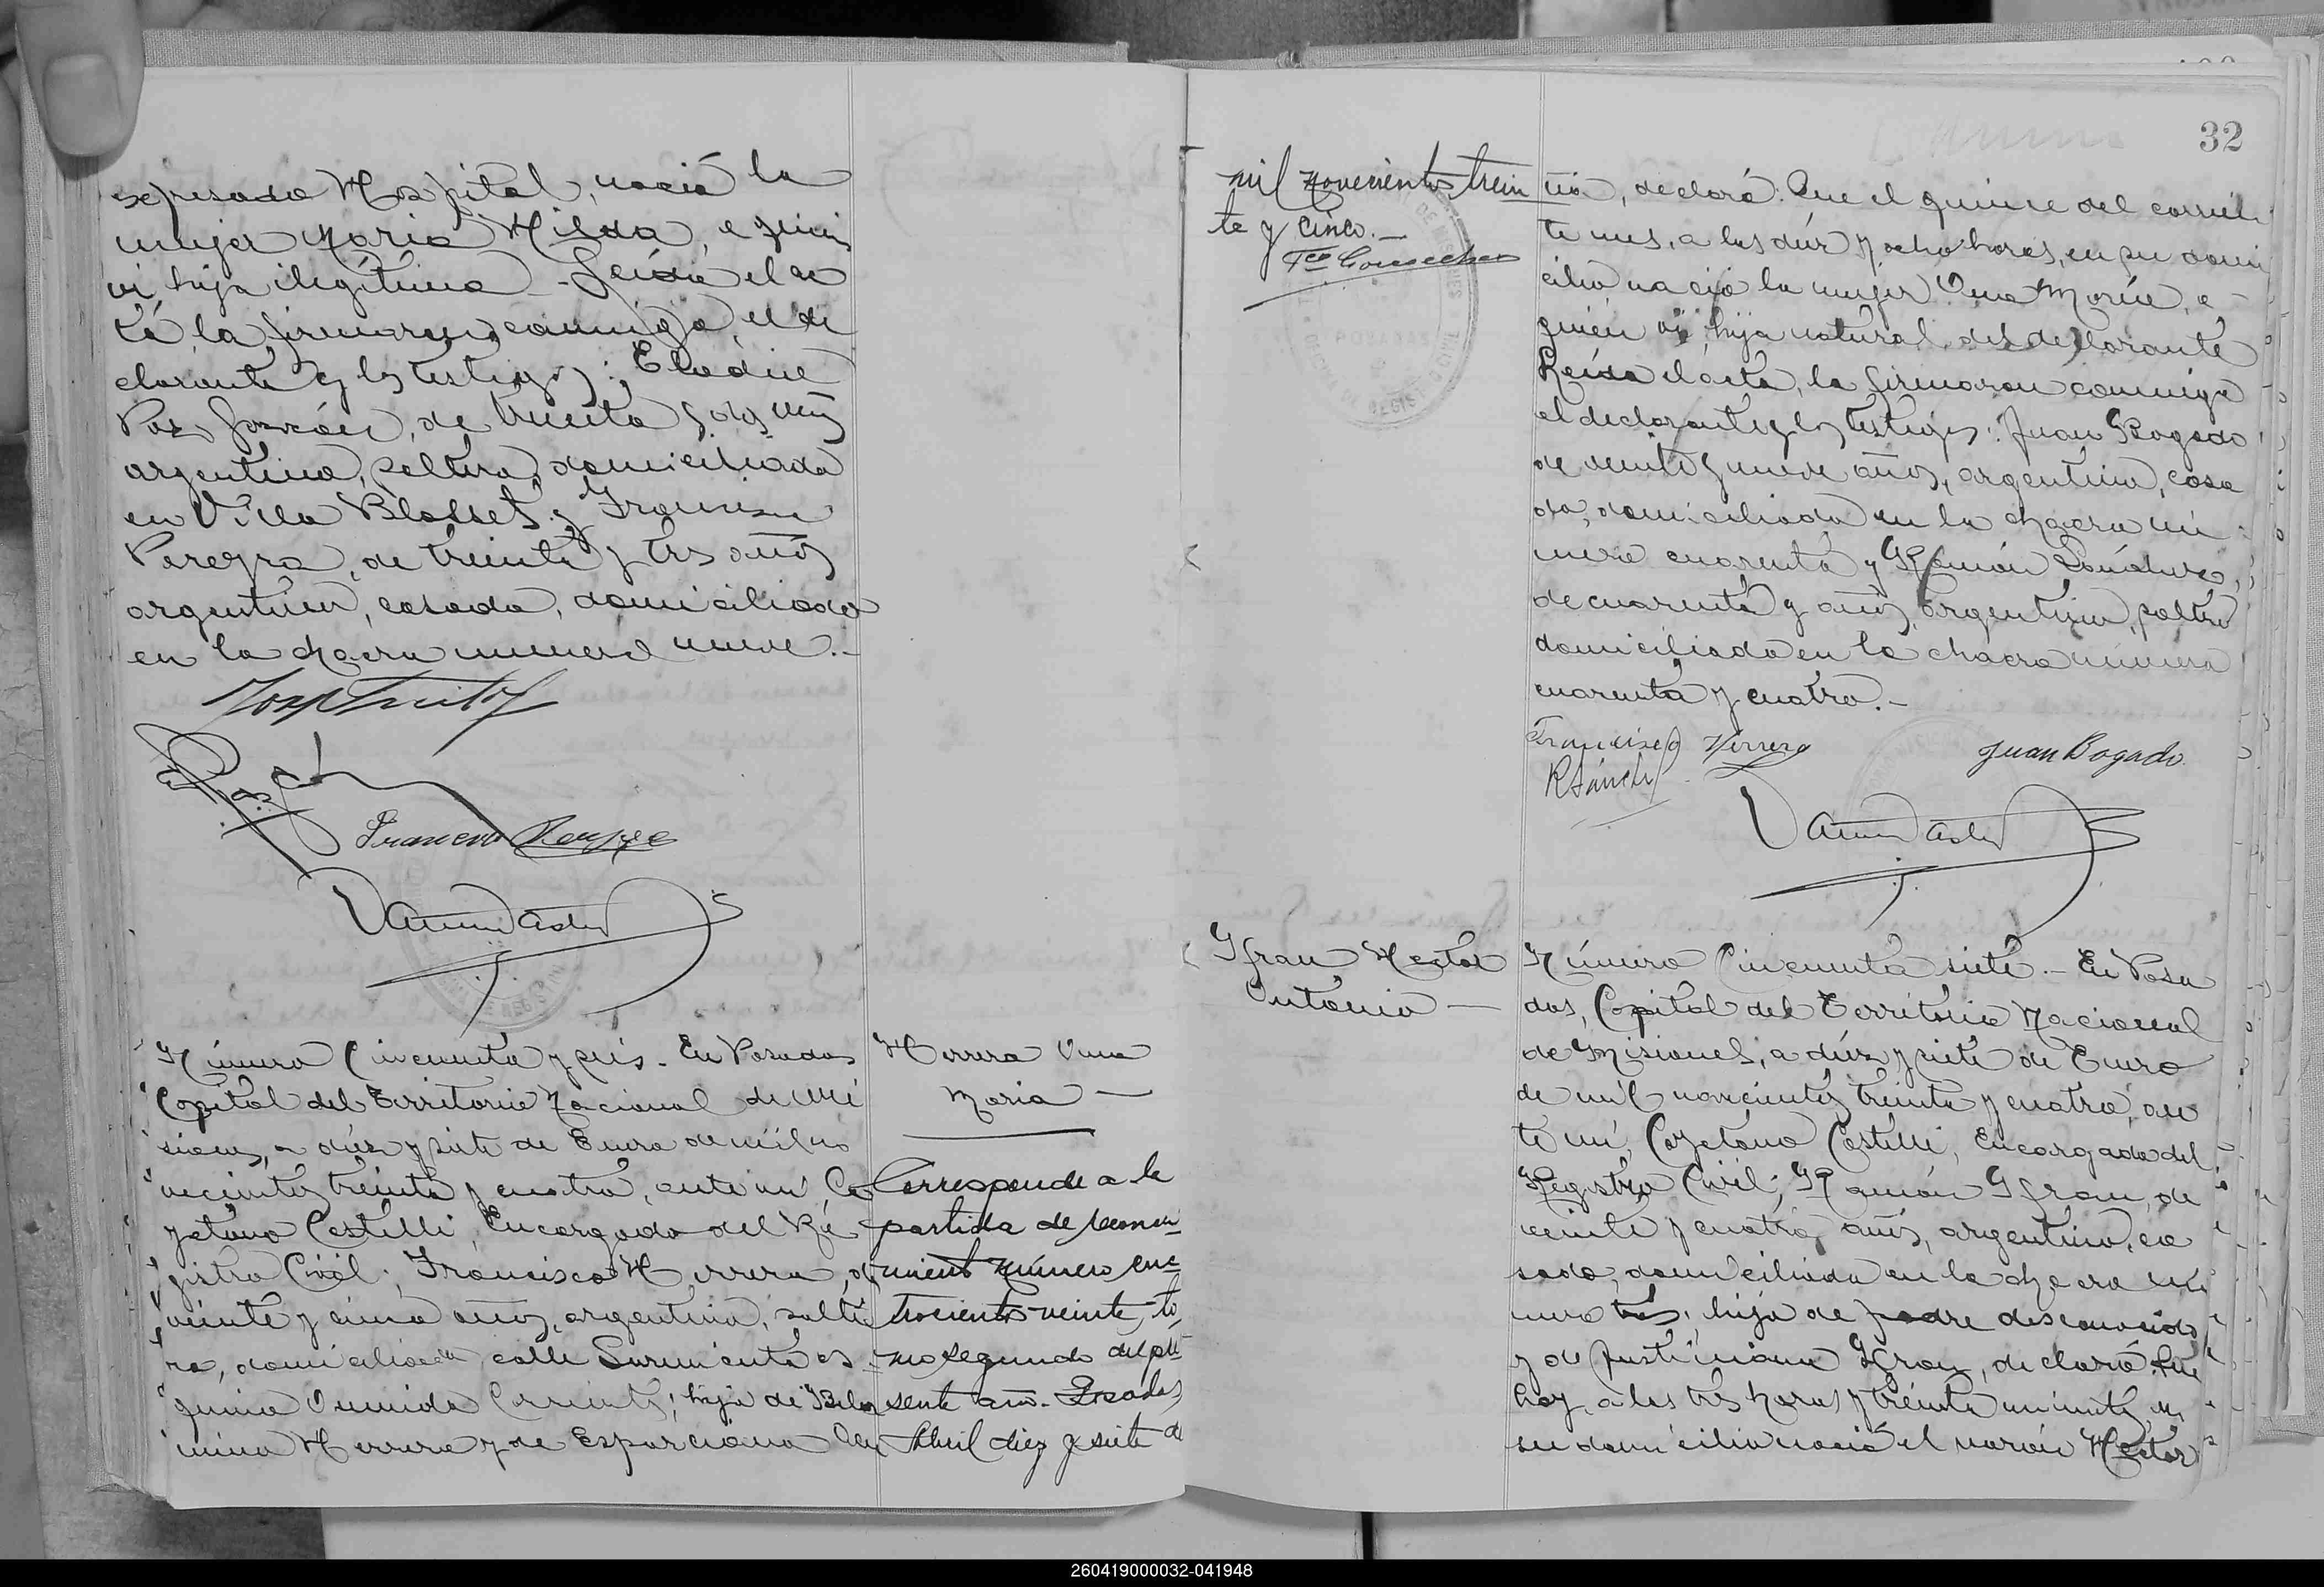 expresado Hospital, nació la
mujer Maria Hilda, a quien
vi hija ilegítima - Leída el ac
ta la firmaron conmigo, el de
clarante y los testigos:
Paz, de treinta y dos años
argentino, soltero, domiciliado
en Villa Blosset y Francisco
Pereyra, de treinta y tres años
argentino, casado, domiciliado
en la chacra numero nueve.-
Número Cincuenta y seis - En Posadas
Capital del Territorio Nacional de Mi
siones, a diez y siete de Enero de mil no
vecientos treinta y cuatro, ante mi Ca
yetano Castelli, Encargado del Re
gistro Civil; Francisco Herrera, de
veinte y cinco años, argentino, solte
ro, domiciliado calle Sarmiento es
quina Avenida Corrientes; hijo de
Herrera y de
Herrera Ana
Maria —
Corresponde a la
partida de reconoci
miento número cua
trocientos veinte, to
mo segundo del pre
sente año. Posadas,
Abril diez y siete de
32
mil novecientos trein
ta y cinco.-
declaró: Que el quince del corrien
te mes, a las diez y ocho horas, en su domi
cilio nació la mujer Ana María, a
quien vi, hija natural del declarante
Leída el acta, la firmaron conmigo
el declarante y los testigos: Juan Bogado
de veinte y nueve años, argentino, casa
do, domiciliado en la chacra nú
mero cuarenta y Ramón Sánchez,
de cuarenta y años, argentino, soltero
domiciliado en la chacra número
cuarenta y cuatro.-
Francisco Herrera
Juan Bogado
R Sánchez
Ifran Hector
Antonio —
Número Cincuenta siete.- En Posa
das, Capital del Territorio Nacional
de Misiones, a diez y siete de Enero
de mil novecientos treinta y cuatro, an
te mi, Cayetano Castelli, Encargado del
Registro Civil; Ramón Ifran, de
veinte y cuatro años, argentino, ca
sado, domiciliado en la chacra nú
mero tres, hijo de padre desconocido
y de Justiniana Ifran, declaró: Que
hoy, a las tres horas y treinta minutos, en
su domicilio nació el varón Hector
260419000032-041948